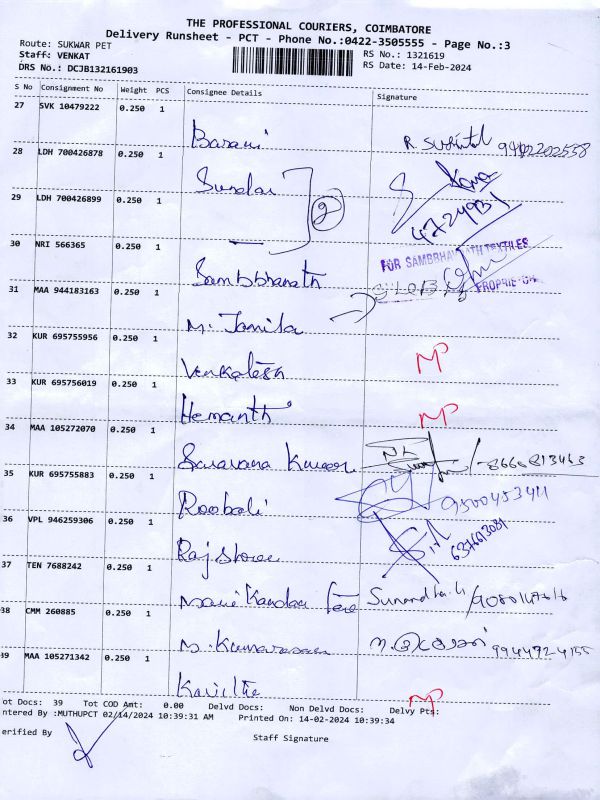 THE PROFESSIONAL COURIERS, COIMBATORE
Delivery Runsheet - PCT - Phone No.:0422-3505555 - Page No.:3
Route: SUKWAR PET
RS No.: 1321619
Staff: VENKAT
RS Date: 14-Feb-2024
DRS No.: DCJB132161903
S No Consignment No Weight PCS Consignee Details Signature
27 SVK 10479222 0.250 1
Barani
28 LDH 700426878 0.250 1
Sundar
29 LDH 700426899 0.250 1
2
30 NRI 566365 0.250 1
FOR SAMBHAVNATH TEXTILES
PROPRIETOR
Sambbhavath
31 MAA 944183163 0.250 1
M. Jamila
32 KUR 695755956 0.250 1
Venkatesh
33 KUR 695756019 0.250 1
Hemanth
34 MAA 105272070 0.250 1
Saravana Kumar 8666813463
35 KUR 695755883 0.250 1
Roobali 9500453411
36 VPL 946259306 0.250 1
Raj Store
37 TEN 7688242 0.250 1
38 CMM 260885 0.250 1
39 MAA 105271342 0.250 1
Kavitha
ot Docs: 39 Tot COD Amt: 0.00 Delvd Docs: Non Delvd Docs: Delvy Pts:
ntered By :MUTHUPCT 02/14/2024 10:39:31 AM Printed On: 14-02-2024 10:39:34
erified By
Staff Signature